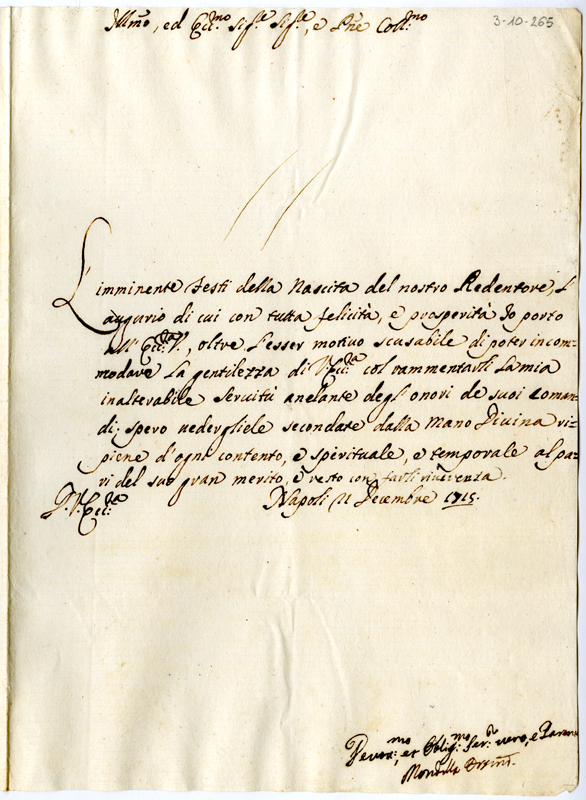 3-10-265
Ill.mo, ed Ecc.mo Sig.re Sig.re, e P.ne Coll.mo
L'imminente Festi della Nascita del nostro Redentore, l'
augurio di cui con tutta felicità, e prosperità Io porto
all' Ecc.za V., oltre l'esser motivo scusabile di poter incom=
modare la gentilezza di V. Ecc.za col rammentarli la mia
inalterabile servitù anelante degl' onori de suoi coman=
di, spero vedergliele secondate dalla Mano Divina ri=
piene d'ogni contento, e spirituale, e temporale al pa=
ri del suo gran merito, e resto con farli riverenza.
D. V. Ecc.za Napoli 21 Decembre 1715.
Devot.mo, et Oblig.mo Ser.re vero, e